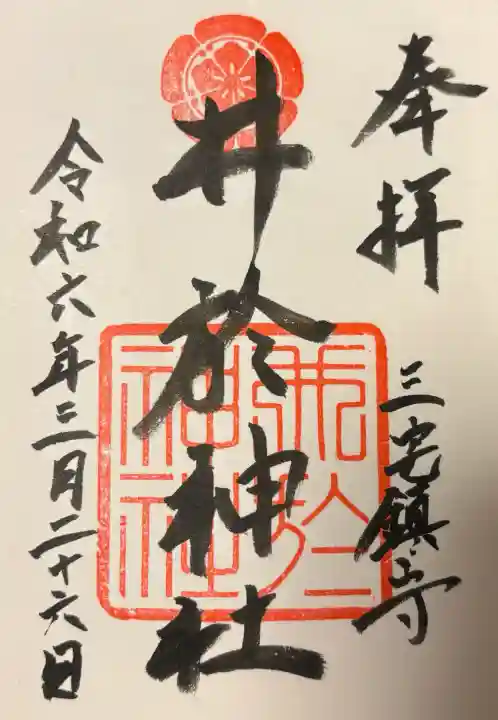 奉拝
三宅鎮守
井於神社
令和六年三月二十六日
井於神社